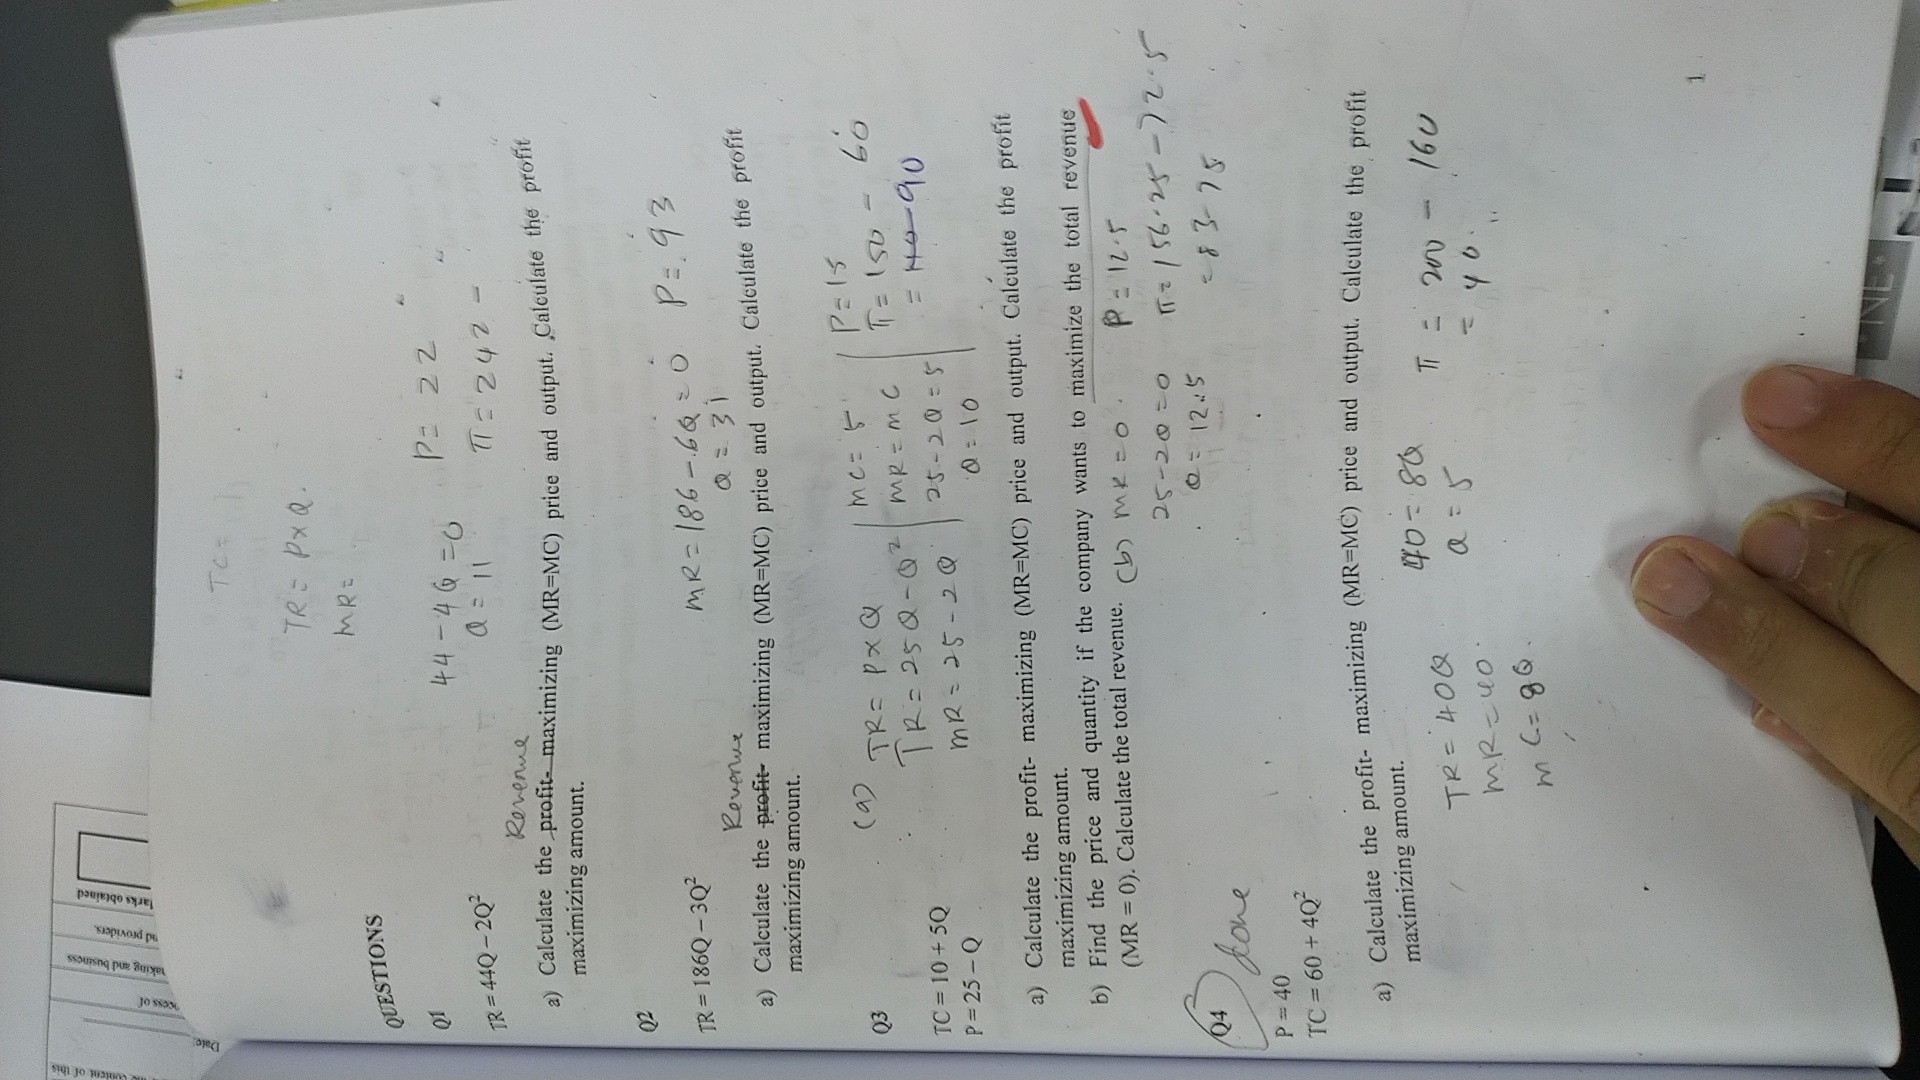 the content of this
Date:
ocess of
aking and business
nd providers.
larks obtained
TC =
TR = P x Q.
MR =
QUESTIONS
Q1
44 - 4Q = 0
P = 22
Q = 11
π = 242 -
TR = 44Q – 2Q²
Revenue
a) Calculate the profit- maximizing (MR=MC) price and output. Calculate the profit
maximizing amount.
Q2
MR = 186 - 6Q = 0 P = 93
Q = 31
TR = 186Q – 3Q²
Revenue
a) Calculate the profit- maximizing (MR=MC) price and output. Calculate the profit
maximizing amount.
Q3
(a) TR = P x Q
TR = 25Q - Q²
MR = 25 - 2Q
MC = 5
MR = MC
25 - 2Q = 5
Q = 10
P = 15
π = 150 - 60
= 90
TC = 10 + 5Q
P = 25 – Q
a) Calculate the profit- maximizing (MR=MC) price and output. Calculate the profit
maximizing amount.
b) Find the price and quantity if the company wants to maximize the total revenue
(MR = 0). Calculate the total revenue.
(b) MR = 0.
25 - 2Q = 0
Q = 12.5
P = 12.5
π = 156.25 - 72.5
= 83.75
Q4 done
P = 40
TC = 60 + 4Q²
a) Calculate the profit- maximizing (MR=MC) price and output. Calculate the profit
maximizing amount.
TR = 40Q
MR = 40
MC = 8Q.
40 = 8Q
Q = 5
π = 200 - 160
= 40.
1
NE